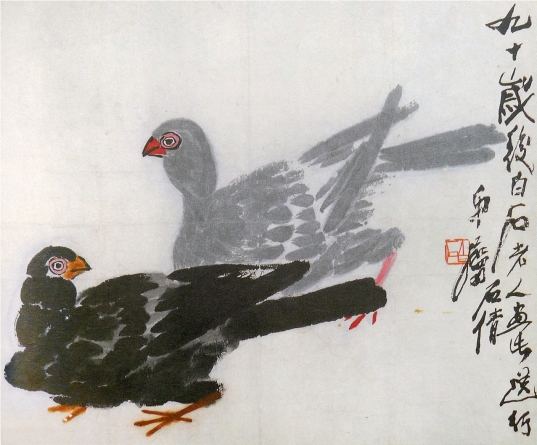 九十歲後白石老人畫送行
石倩